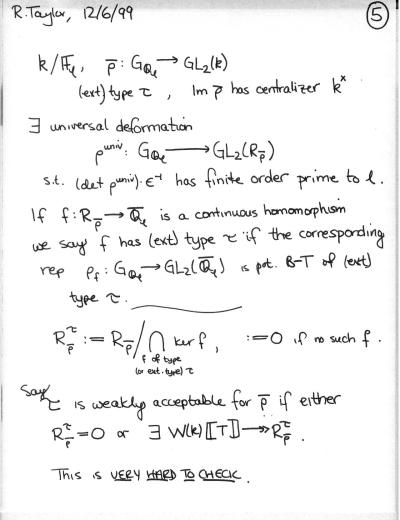 R. Taylor, 12/6/99
5
k/𝔽ₗ, ρ̄: G_{ℚₗ} → GL₂(k)
(ext) type τ, Im ρ̄ has centralizer kˣ
∃ universal deformation
ρ^{univ}: G_{ℚₗ} → GL₂(R_{ρ̄})
s.t. (det ρ^{univ})·ε⁻¹ has finite order prime to l.
If f: R_{ρ̄} → ℚ̄ₗ is a continuous homomorphism
we say f has (ext) type τ if the corresponding
rep ρ_f: G_{ℚₗ} → GL₂(ℚ̄ₗ) is pot. B-T of (ext)
type τ.
R^τ_{ρ̄} := R_{ρ̄} / ⋂ ker f, := 0 if no such f.
f of type
(or ext. type) τ
Say
τ is weakly acceptable for ρ̄ if either
R^τ_{ρ̄} = 0 or ∃ W(k)[[T]] ↠ R^τ_{ρ̄}.
This is VERY HARD TO CHECK.